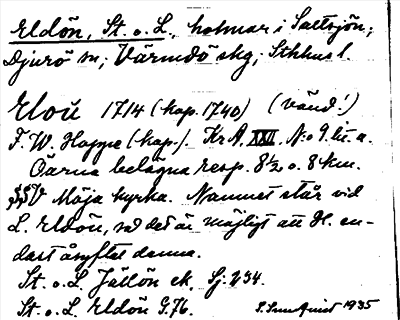 Eldön, St. o. L., holmar i Saltsjön;
Djurö sn; Värmdö skg; Sthlms l.
Eloü 1714 (kop. 1740) (vänd!)
F. W. Hoppe (kop.). Kr.A. XXI, N:o 9 lit a.
Öarna belägna resp. 8 1/2 o. 8 km.
V Möja kyrka. Namnet står vid
L. Eldön, så det är möjligt att H. en-
dast åsyftat denna.
St. o. L. Jällön ek, Sj. 234.
St. o. L. Eldön G.76. S. Sundquist 1935